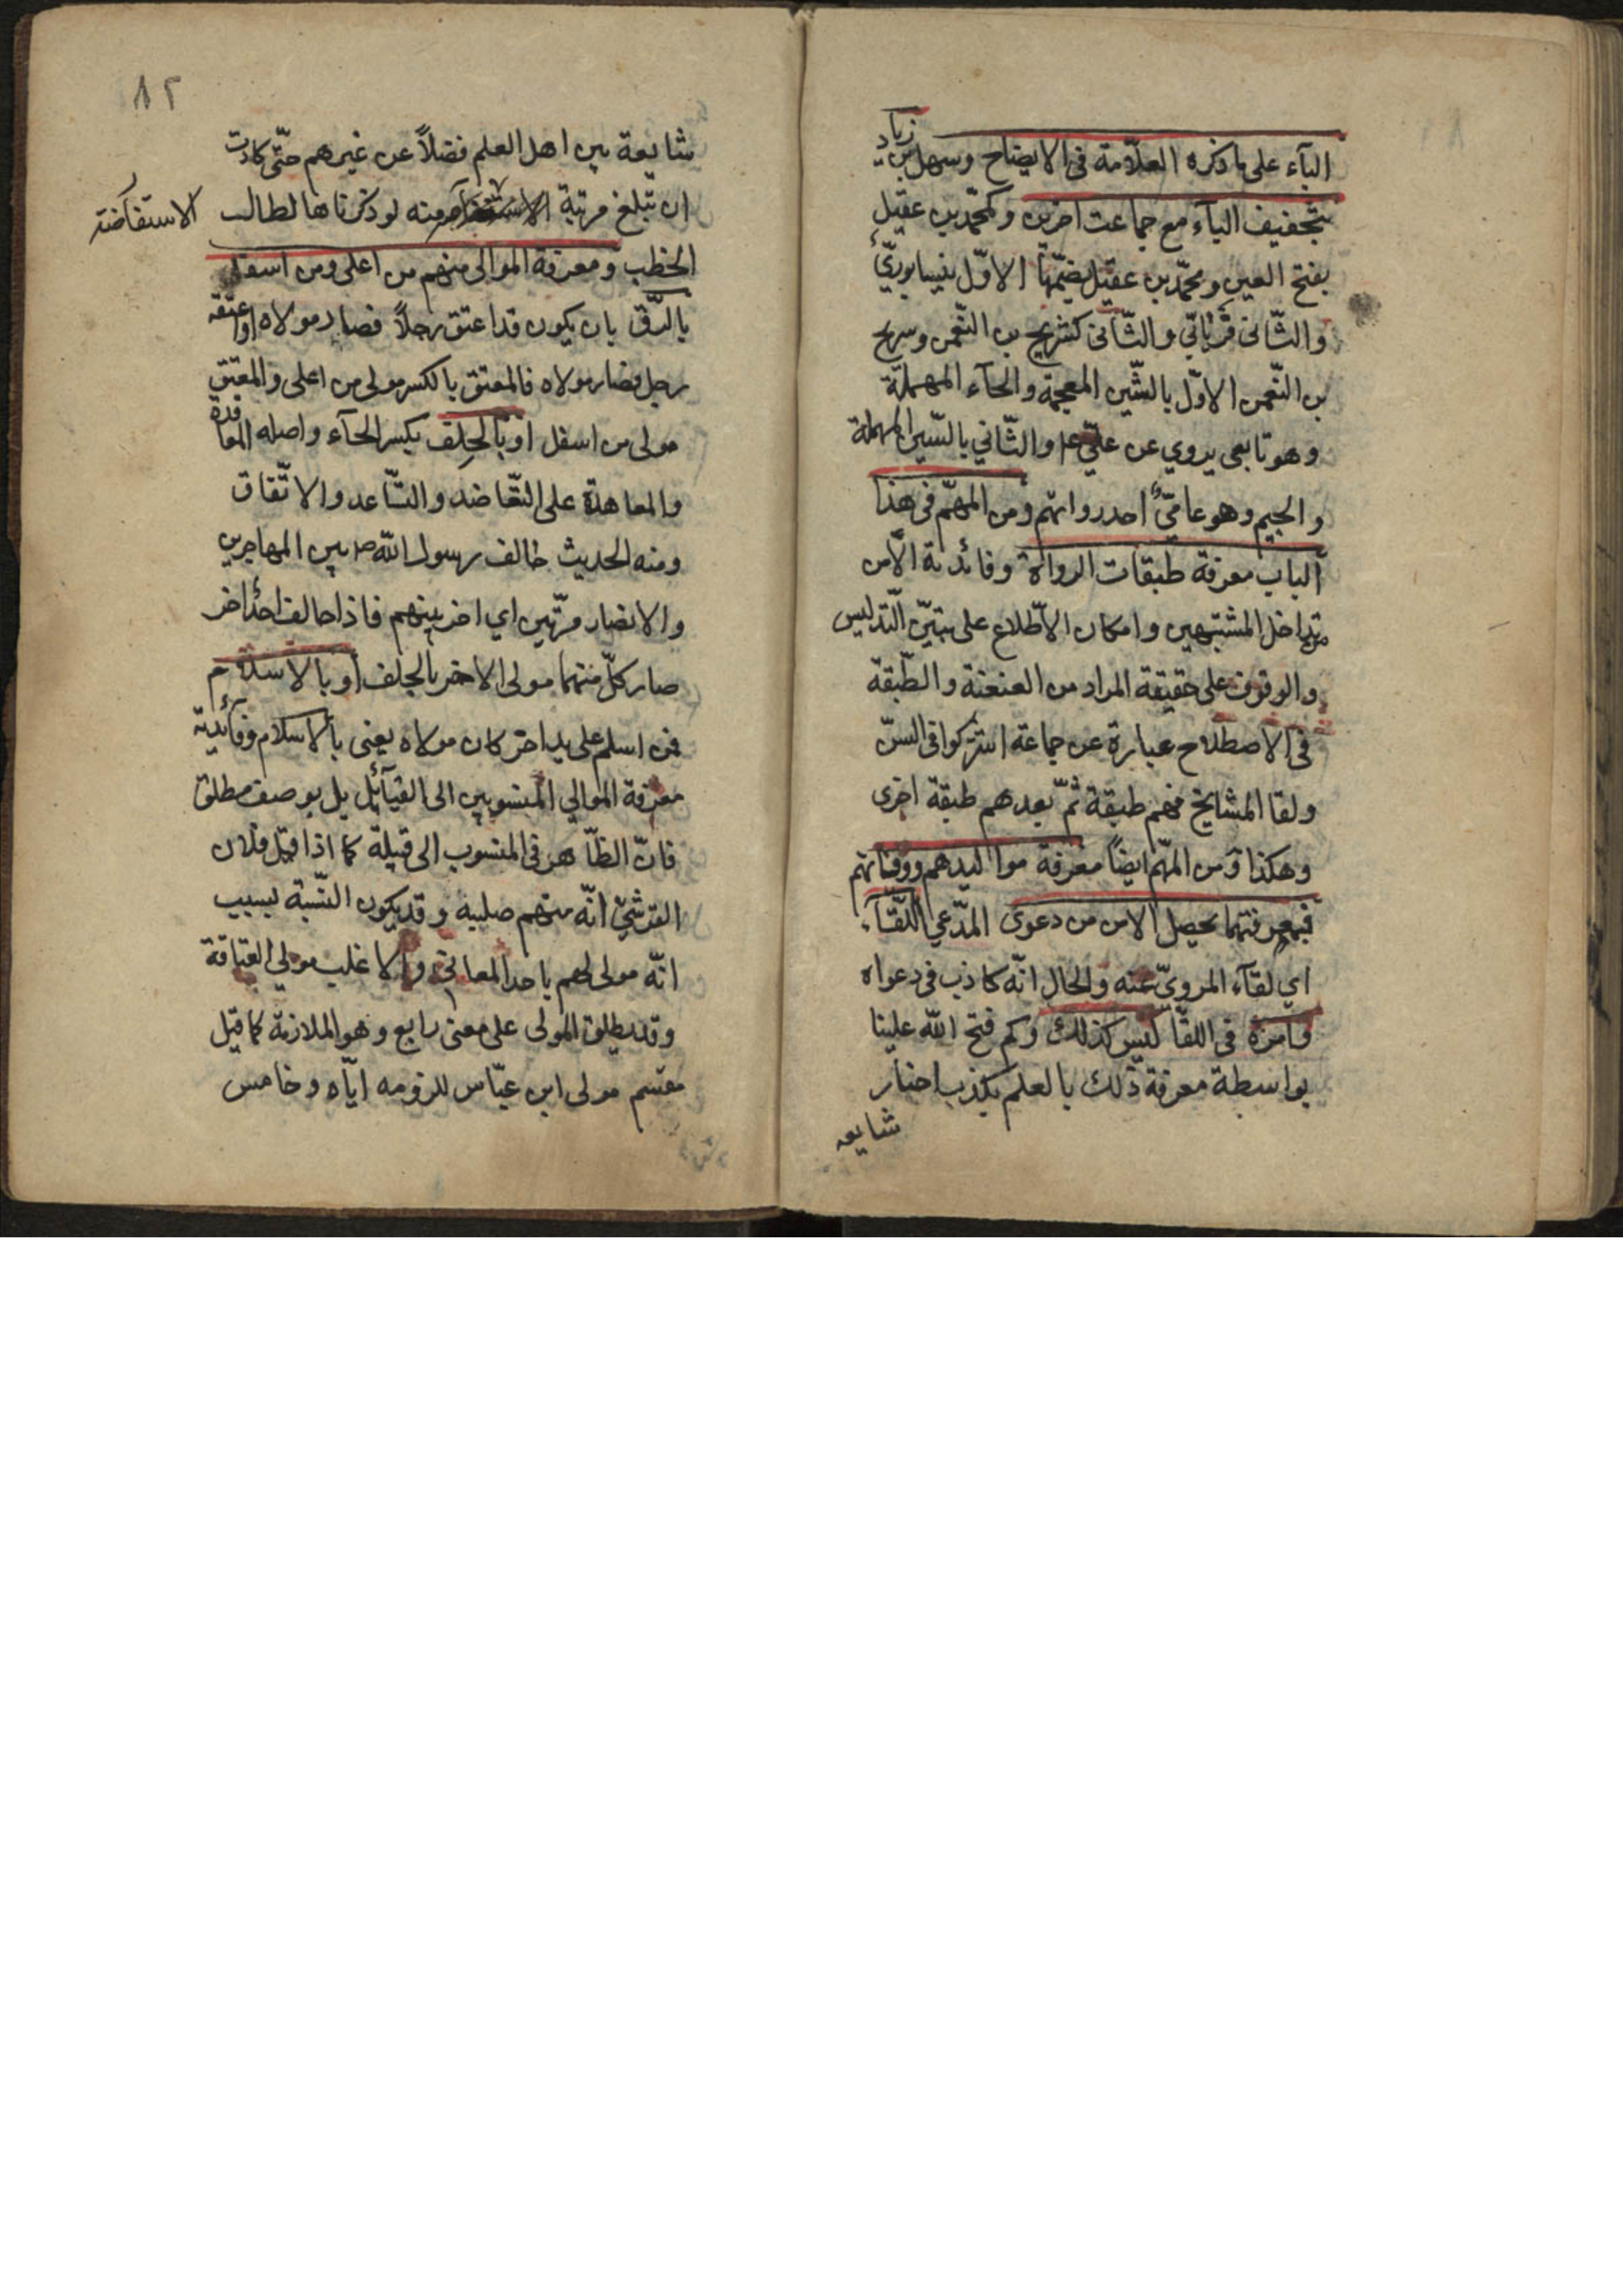 الياء على ما ذكره العلّامة فى الايضاح وسهل بن زياد
بتخفيف الياء مع جماعت اخرين وكمحمّد بن عقيل
بفتح العين ومحمّد بن عقيل بضمّها الاوّل نيسابوريّ
والثّانى فريابّي والثّانى كشريح بن النّعمن وسريج
بن النّعمن الاوّل بالشّين المعجمة والحآء المهملة
وهو تابعى يروي عن علىّ ع م والثّاني بالسّين المهملة
والجيم وهو عامىّ احد رواتهم ومن المهمّ فى هذا
الباب معرفة طبقات الرواة وفائدته الأمن
من تداخل المشتبهين وامكان الأطّلاع على تبيّن التّدليس
والوقوف على حقيقة المراد من العنعنة والطّبقة
فى الاصطلاح عبارة عن جماعة اشتركوا فى السّن
ولقا المشايخ فهم طبقة ثمّ بعدهم طبقة اخرى
وهكذا ومن المهّم ايضاً معرفة مواليدهم ووفياتهم
فبمعرفتهما يحصل الامن من دعوى المدّعي اللّقآء
اي لقآء المرويّ عنه والحال انّه كاذب فى دعواه
وامره فى اللقا ليس كذلك وكم فتح اللّه علينا
بواسطة معرفة ذلك بالعلم بكذب اخبار
شايعه
٨٢
شايعة بين اهل العلم فضلاً عن غيرهم حتّى كادت
ان تبلغ مرتبة منه لو ذكرناها لطالب
الاستفاضة
الخطب ومعرفة الموالى منهم من اعلى ومن اسفل
بالرّق بان يكون قد اعتق رجلاً فصار مولاه او اعتقه
رجل فصار مولاه فالمعتق بالكسر مولى من اعلى والمعتق
مولى من اسفل او بالحِلف بكسر الحآء واصله المعاقدة
والمعاهدة على التّعاضد والتّساعد والاتّفاق
ومنه الحديث حالف رسول اللّه ص بين المهاجرين
والانصار مرّتين اي اخر بينهم فاذا حالف احدٌ اخر
صار كلّ منهما مولى الاخر بالحلف او بالاسلام
فمن اسلم على يد اخر كان مولاه يعنى بالاسلام وفائدته
معرفة الموالي المنسوبين الى القبآئل بل بوصف مطلق
فانّ الظّاهر فى المنسوب الى قبيلة كما اذا قيل فلان
القرشيّ انّه منهم صلبيه وقد يكون النّسبة لسبب
انّه مولى لهم باحد المعاني والاغلب مولى العتاقة
وقد يطلق المولى على معنى رابع وهو الملازمة كما قيل
مقسم مولى ابن عبّاس للزومه ايّاه وخامس